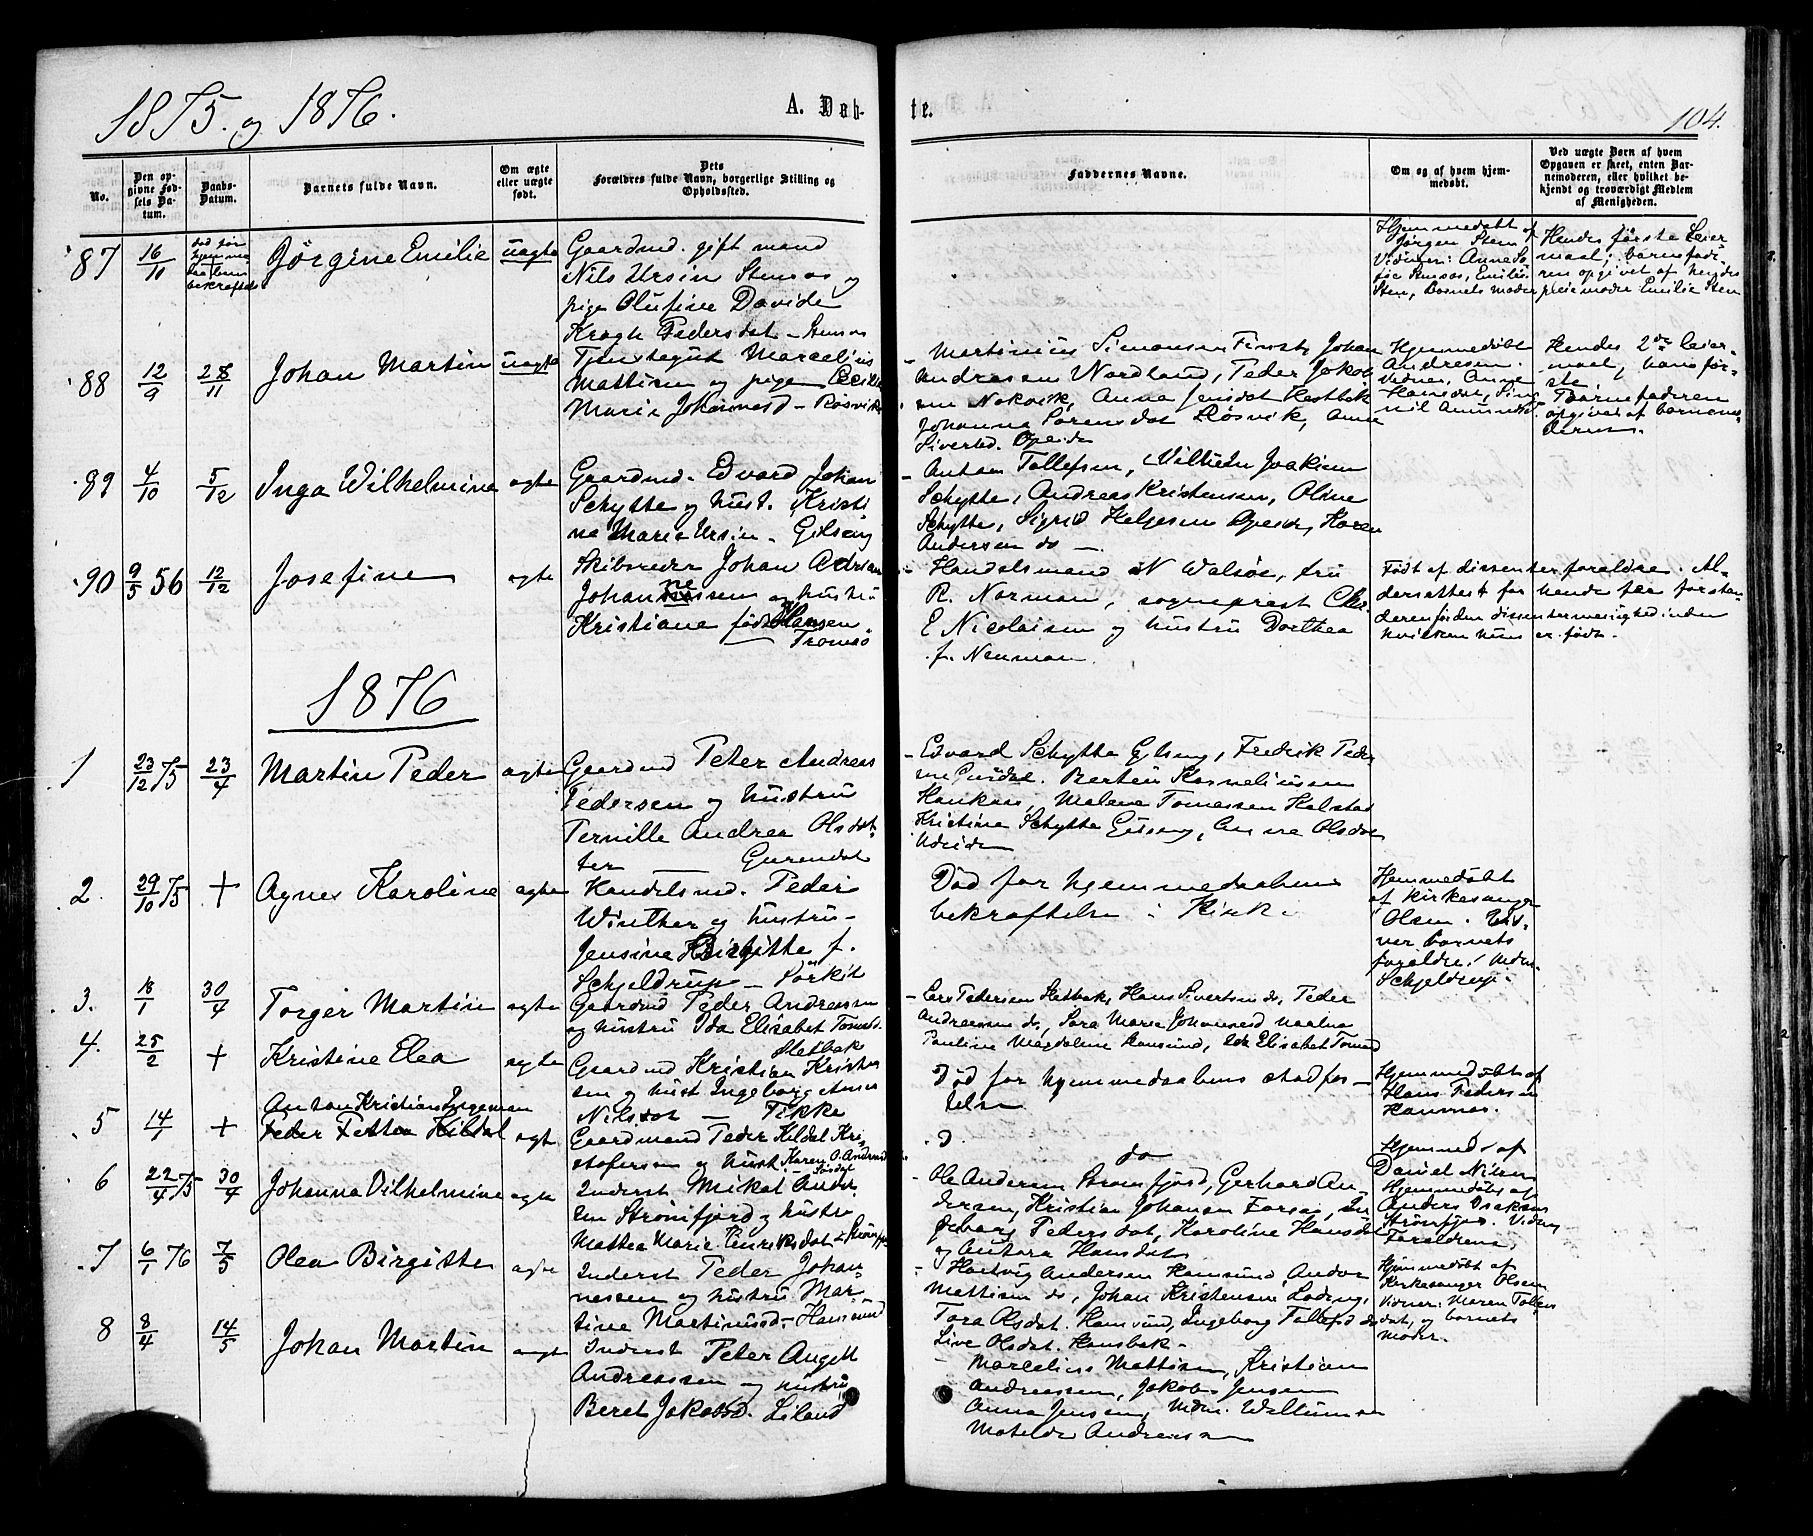 1875 og 1876.
A. Døb-
te.
104.
No.
Den op-
givne Fød-
sels Da-
tum.
Daabs-
Datum.
Barnets fulde Navn.
Om ægte
eller uægte
født.
Dets
Forældres fulde Navn, borgerlige Stilling og
Opholdssted.
Faddernes Navne.
Om og af hvem hjem-
medøbt.
Ved uægte Børn af hvem
Opgaven er skeet, enten Bar-
nemoderen, eller hvilket be-
kjendt og troværdigt Medlem
af Menigheden.
87
16/11
død før
hjemme
daabens
bekræftelse
Jørgine Emilie
uægte
Gaardmd. gift mand
Nils Ursin Stensøs og
pige Olufine Davide
Kragh Pedersdat - Stensøs
Hjemmedøbt af
Jørgen Sten,
Vidner:
Sten, Barnets moder
Hendes første Leier-
maal; barnefade-
ren opgivet af hendes
pleiemoder Emilie Sten
88
12/9
28/11
Johan Martin
uægte
Tjenstegut Marcelius
Mattisen og pige Cecilie
Marie Johannesd - Røsvik
- Martinius Simonsen Finset, Johan
Andreasen Nordland, Peder Jakob-
sen Nokvik, Anna Jensdat Hestbak
Johanna Sørensdat Røsvik, Anne
Sivertsd. Opeide
Hjemmedøbt
Andresen.
Vidner, Anne
Hansdat,
Hendes 2de Leier-
maal, hans før-
ste.
Barnefaderen
opgivet af barnemo-
deren.
89
4/10
5/12
Inga Wilhelmine
ægte
Gaardmd. Edvard Johan
Schytte og hust. Kristi-
ne Marie Ursin - Gilsæng
- Antam Tollefsen, Vilhelm Joakim
Schytte, Andreas Kristensen, Oline
Schytte, Sigrid Helgesen Opeide, Karen
Andersen do -
90
9/5 56
12/12
Josefine
ægte
Skibsreder Johan Adrian
Johannesen og hustru
Kristiane født Hansen
Tromsø
- Handelsmand N Walsøe, fru
R. Norman, sogneprest Chr.
E Nicolaisen og hustru Dorthea
f. Neuman.
Født af dissenterforældre. Al-
dersattest for hende fra forstan-
deren for den dissentermenighed inden
hvilken hun er født.
1876
1
23/12 75
23/4
Martin Peder
ægte
Gaardmd Peter Andreas
Pedersen og hustru
Pernille Andrea Olsdat-
ter - Gurendal
- Edvard Schytte Gilsæng, Fredrik Peder-
sen Gurdal. Berten Korneliussen
Haukøen, Malene Tomassen Kalstad
Kristine Schytte Gilsæng, Anna Olsdat
2.
29/10 75
+
Agnes Karoline
ægte
Handelsmd. Peder
Winther og hustru -
Jensine Birgitte f.
Schjeldrup - Pørkit
Død før hjemmedaabens
bekræftelse i Kirke.
Hjemmedøbt
af kirkesanger
Olsen. Vid-
ner barnets
forældre, Mdm.
Schjeldrup.
3.
18/1
30/4
Torger Martin
ægte
Gaardmd Peder Andreassen
og hustru Ida Elisabet Tomasd.
Sletbak
- Lars Pedersen Sletbak, Hans Sivertsen do, Peder
Andreassen do, Sara Marie Johannesd
Pauline Magdalene Hamsund, Ida Elisabet Tomasd
4.
25/2
+
Kristine Elea
ægte
Gaardmd Kristian Kristian-
sen og hust Ingeborg Anna
Nilsdat - Fikke
Død før hjemmedaabens stadfæs-
telse
Hjemmedøbt af
Hans Pedersen
Hamnæs.
5
14/1
+
Anton Kristian Ingeman
Peder Petter Kildal
ægte
Gaardmand Peder Kildal Kri-
stofersen og hust. Karen O. Andreasd
do
Hjemmed. af
Daniel Nilsen
6
22/4 75
30/4
Johanna Vilhelmine
ægte
Inderst Mikal Ander-
sen Strømfjord og hustru
Mattea Marie Henriksdat
- Ole Andersen Strømfjord, Gerhard An-
dersen, Kristian Johansen Forsaa, In-
geborg Pedersdat, Karoline Hansdat
og Antora Hansdat
Hjemmedøbt af
Anders Isaksen
Strømfjor. Vidner
Forældrene.
7
6/1 76
7/5
Olea Birgitte
ægte
Inderst Peder Johan-
nessen og hustru Mar-
tine Martinusd - Hamsund
- Hartvig Andersen Hamsund, Andor
Mattisen do, Johan Kristensen Løding,
Tora Olsdat. Hamsund, Ingeborg Tollefsd do
Live Olsdat. Hansbak -
Hjemmedøbt af
kirkesanger Olsen
Vidner: Maren Tollefs-
dat, og barnets
moder.
8
8/4
14/5
Johan Martin
ægte
Inderst Peter Angell
Andreassen og hustru
Beret Jakobsd. Liland
- Marcelius Mattisen, Kristian
Andreassen, Jakob Jensen
Anna Jensen, Mdm. Weltum og
Matilde Andreassen